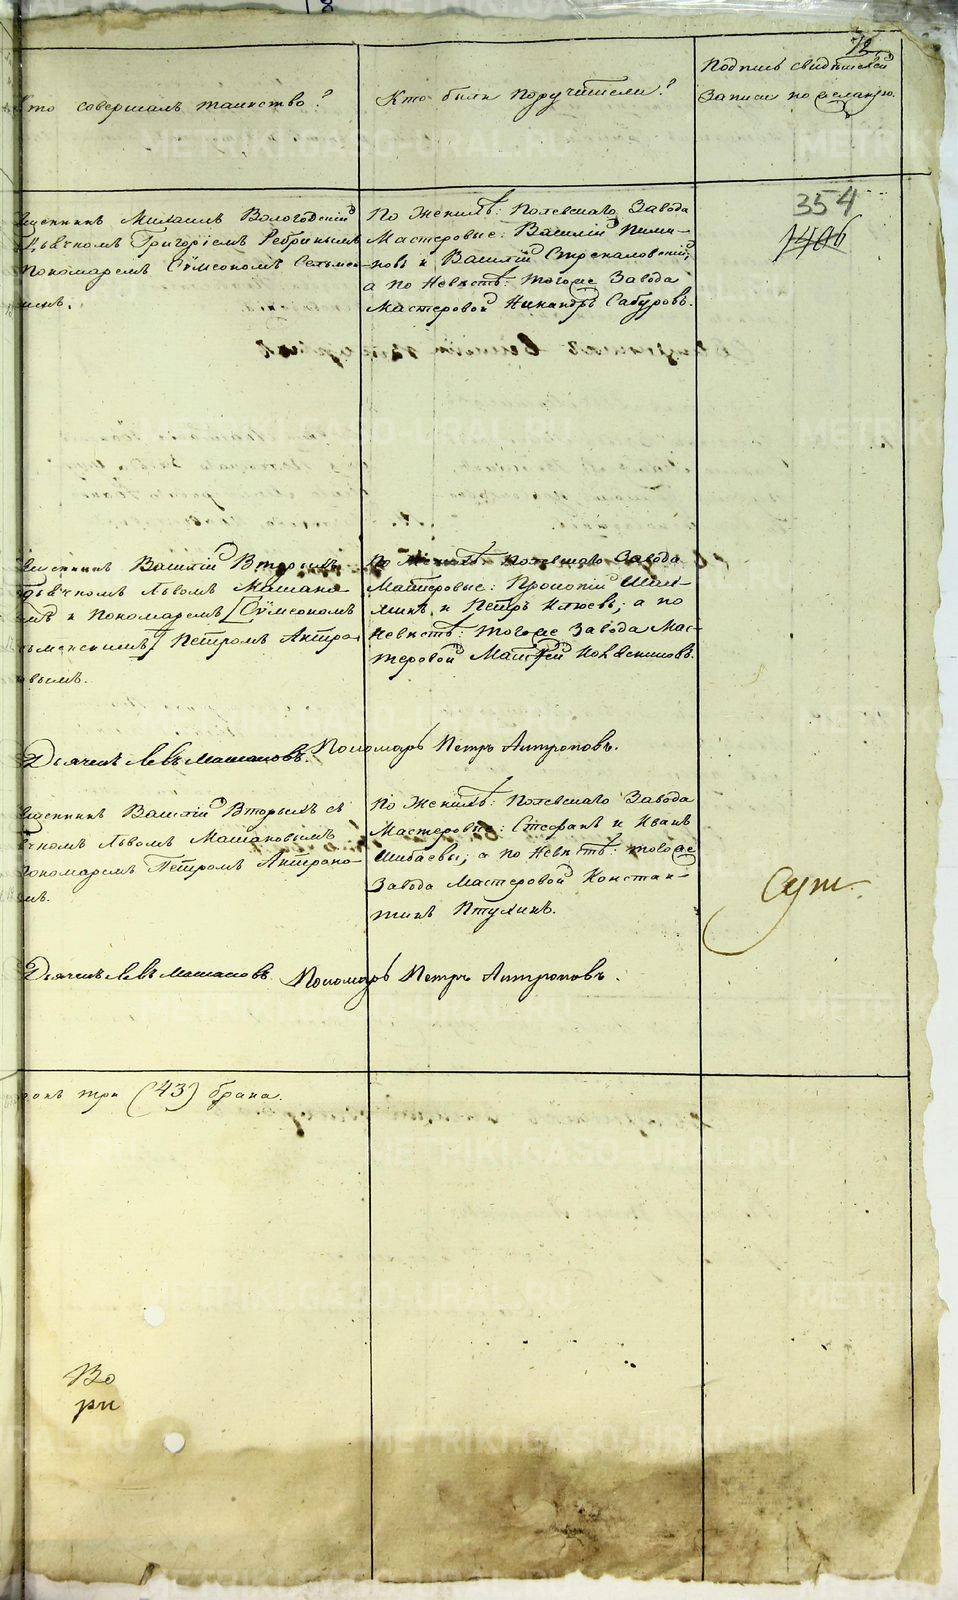 72
Кто совершалъ таинство?
Кто были поручители?
Подпись свидѣтелей
записи по желанію.
354
1406
Священникъ Михаилъ Вологодскій
Дьячкомъ Григоріемъ Ребринымъ
Пономаремъ Сѵмеономъ
По Женихѣ: Полевскаго Завода
Мастеровые: Василій
и Василій Стрекаловскій;
а по Невѣстѣ: тогоже Завода
Мастеровой Никандръ Сабуровъ.
Священникъ Василій Вторымъ
дьячкомъ Львомъ Машано
и Пономаремъ [Сѵмеономъ
Петромъ Антро
вымъ.
По Женихѣ: Полевскаго Завода
Мастеровые: Прокопій Шал
и Петръ Клюевъ; а по
Невѣстѣ: тогоже Завода Мас-
теровой Матѳей
Дьячекъ Левъ Машановъ. Пономарь Петръ Антроповъ.
Священникъ Василій Вторымъ съ
Дьячкомъ Львомъ Машановымъ
Пономаремъ Петромъ Антропо-
мъ.
По Женихѣ: Полевскаго Завода
Мастеровые: Стефанъ и Иванъ
Шибаевы; а по Невѣстѣ: тогоже
Завода Мастеровой Констан-
тинъ Птухинъ.
Дьячекъ Левъ Машановъ. Пономарь Петръ Антроповъ.
рокъ три (43) брака.
METRIKI.GASO-URAL.RU